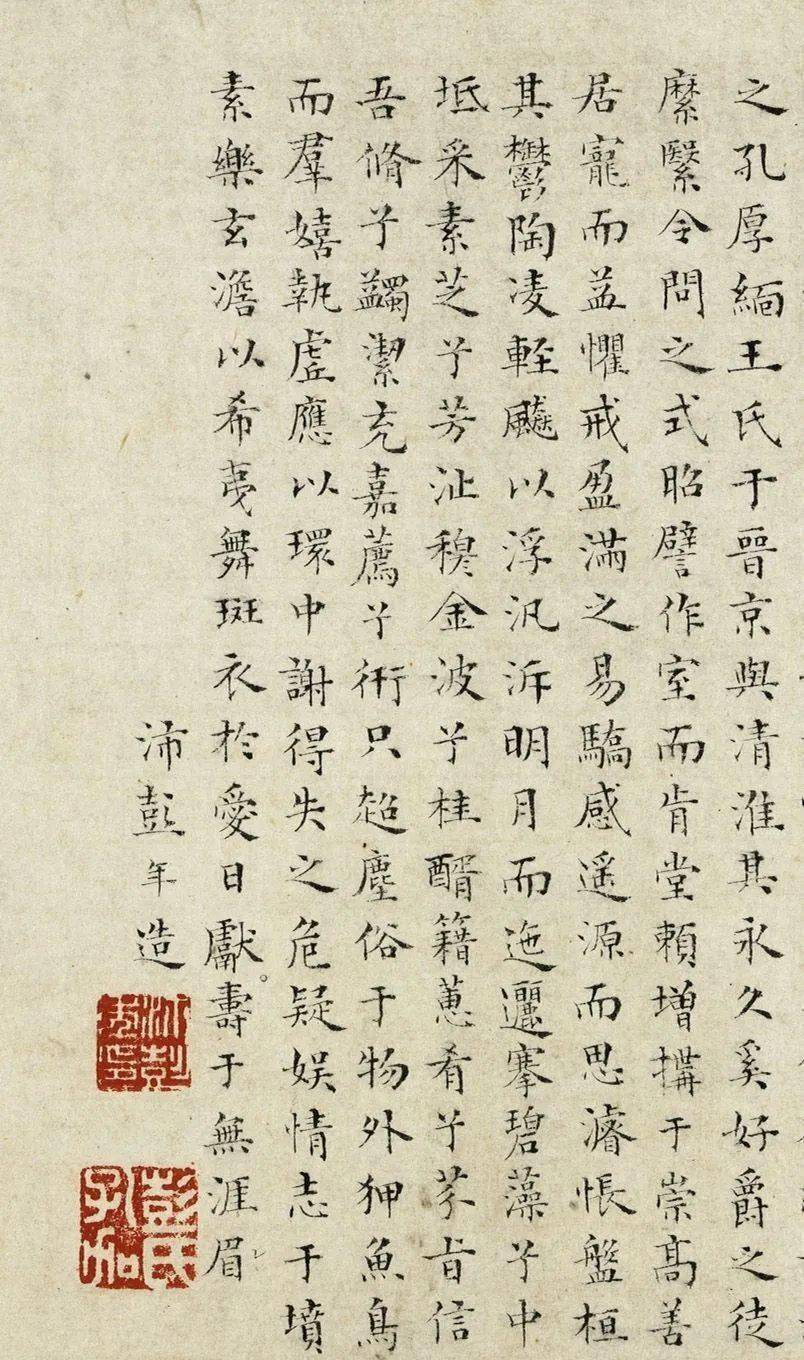 之孔厚緬王氏于晉京與清淮其永久奚好爵之徒
縻繄令問之式昭譬作室而肯堂賴增搆于崇高善
居寵而益懼戒盈滿之易驕感遥源而思濬悵盤桓
其鬱陶凌輕飇以浮汎泝明月而迤邐搴碧藻兮中
坻采素芝兮芳沚穆金波兮桂醑籍蕙肴兮芬旨信
吾脩兮蠲潔充嘉薦兮衎只超塵俗于物外狎魚鳥
而羣嬉執虛應以環中謝得失之危疑娱情志于墳
素樂玄澹以希夷舞斑衣於愛日獻壽于無涯眉
沛彭年造
彭氏孔加